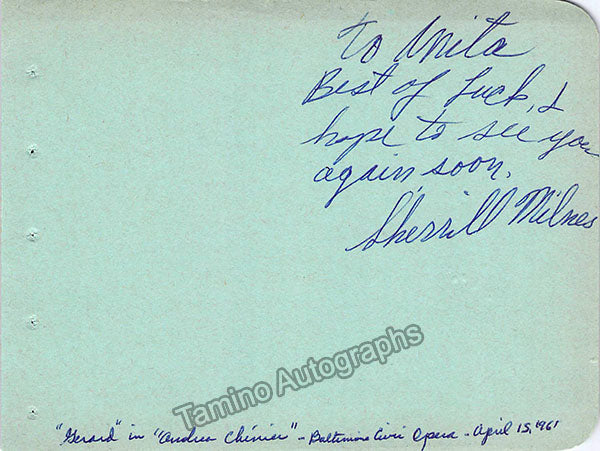 to Anita
Best of luck, I
hope to see you
again, soon,
Sherrill Milnes
Tamino Autographs
"Gerard" in "Andrea Chénier" - Baltimore Civic Opera - April 15, 1961